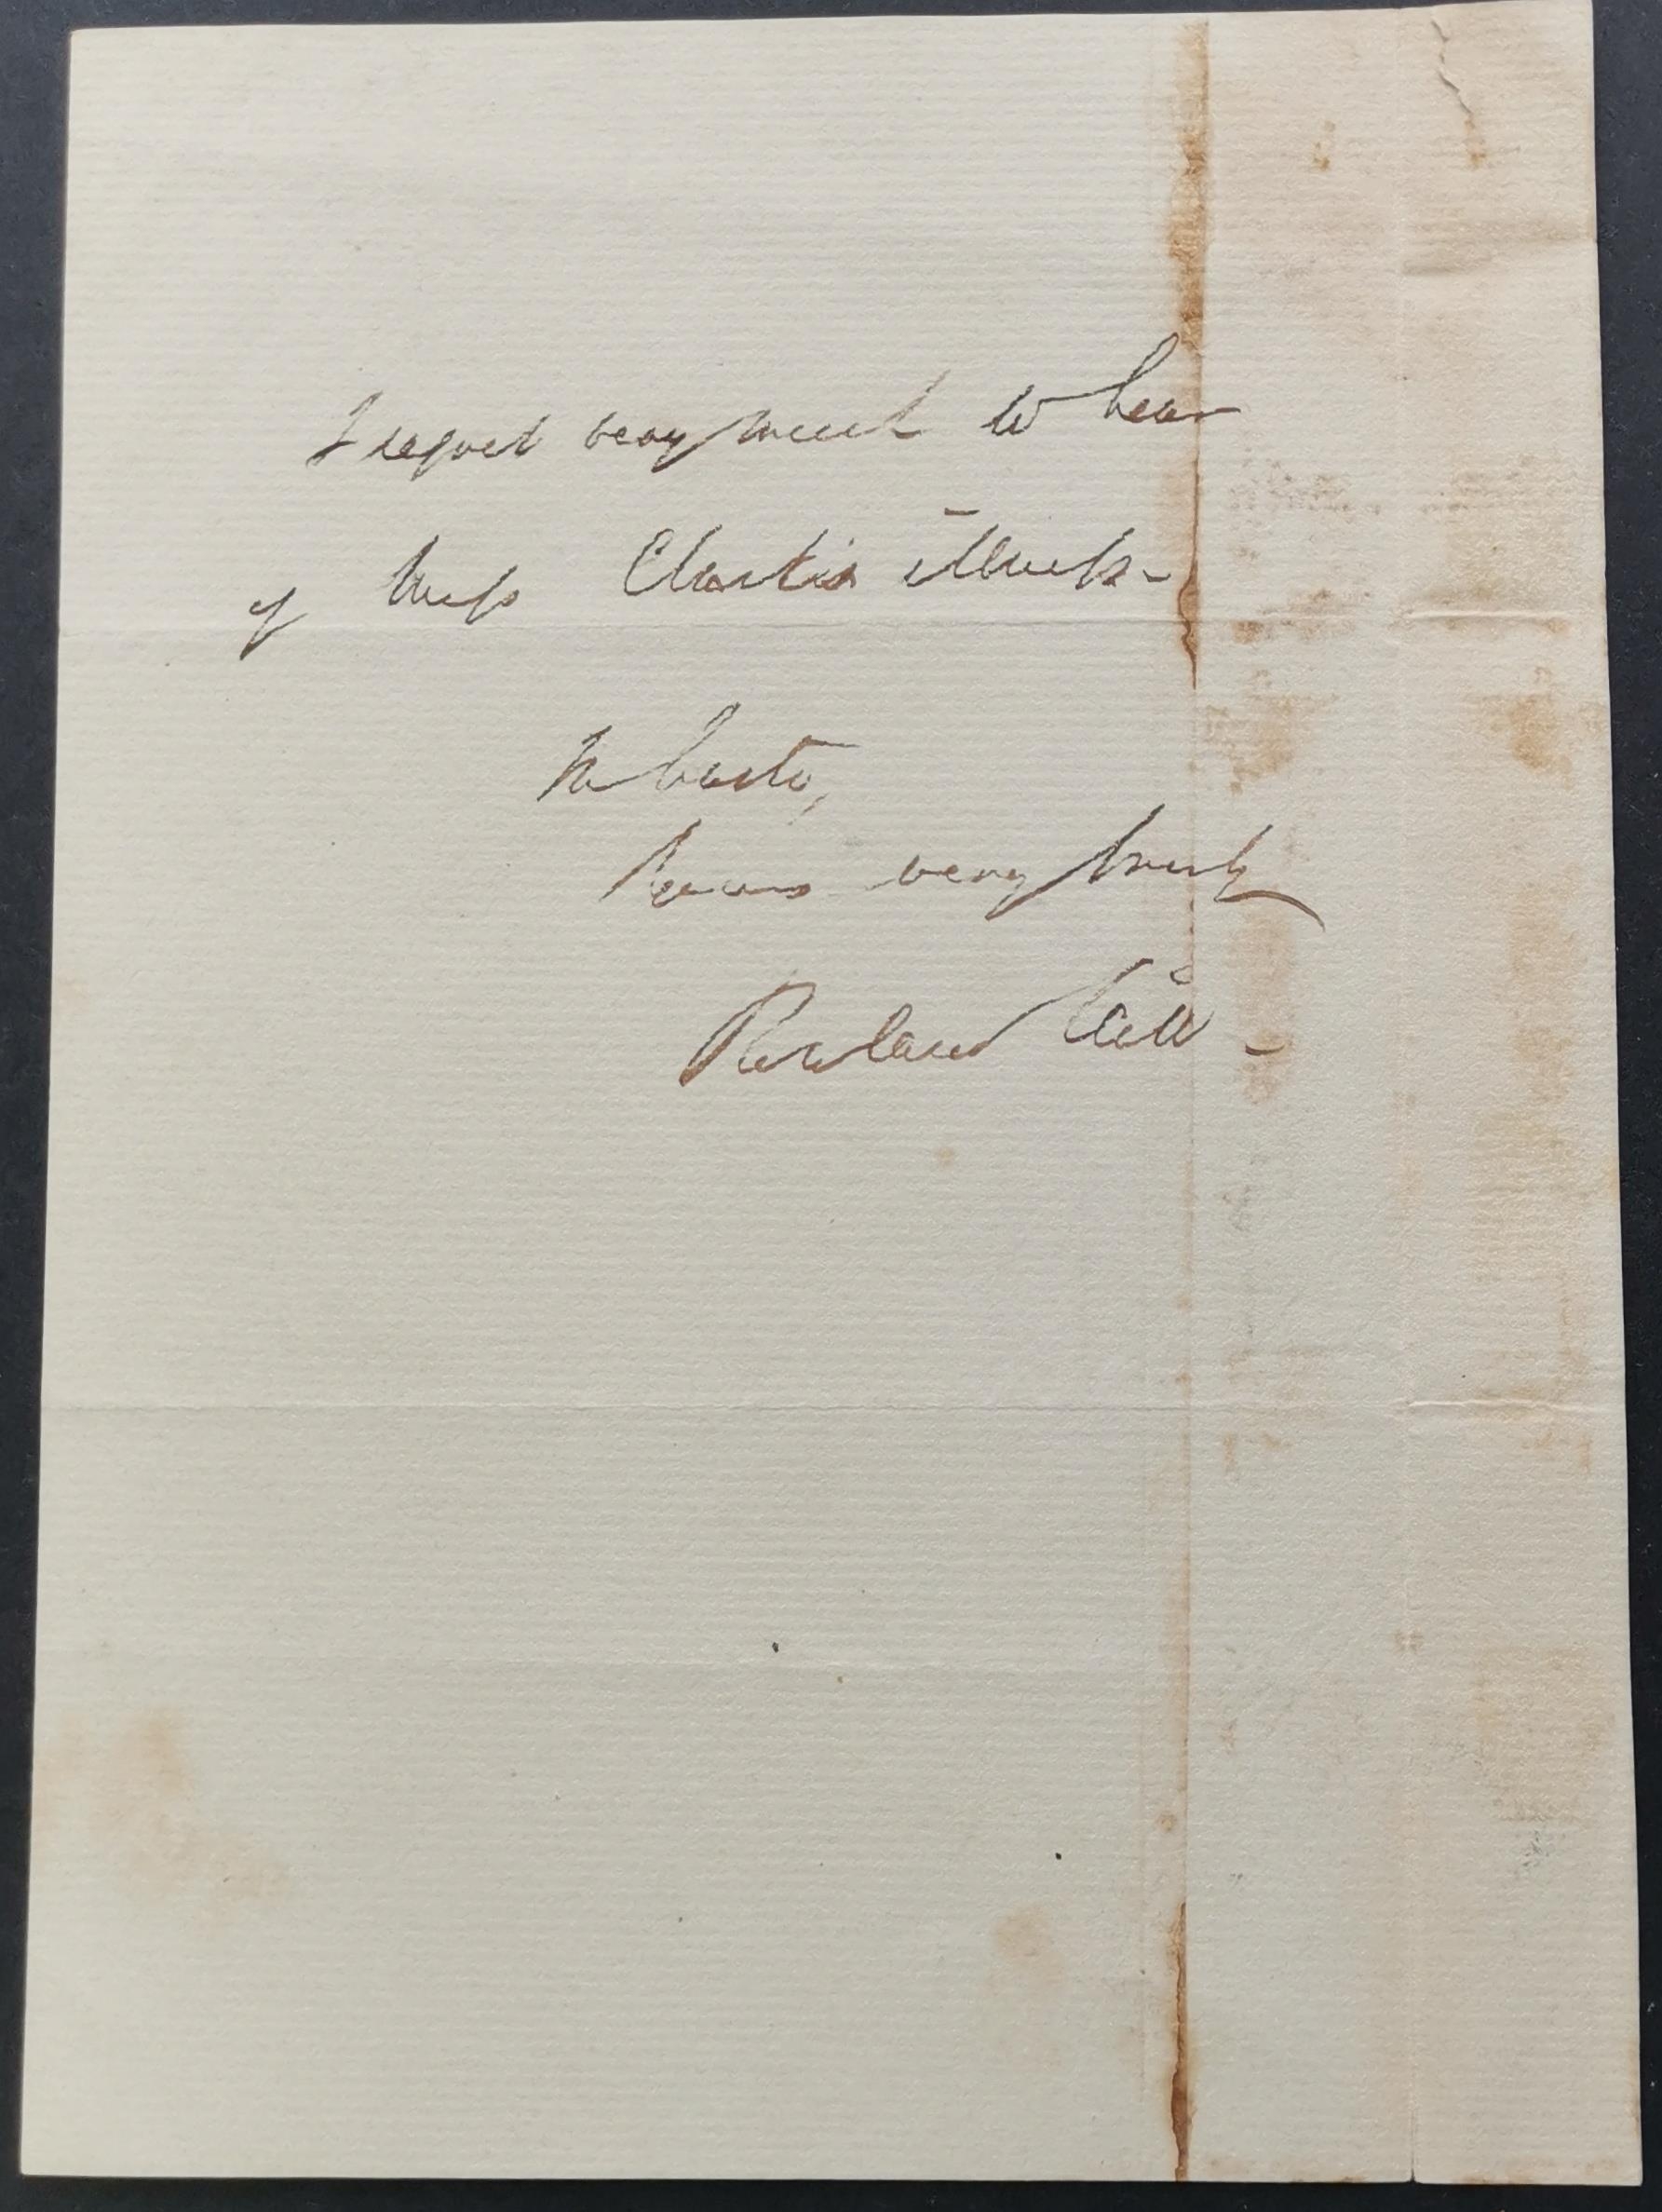 I regret very much to hear
of Miss Clarkes illness -
In haste,
Yours very truly
Rowland Hill -